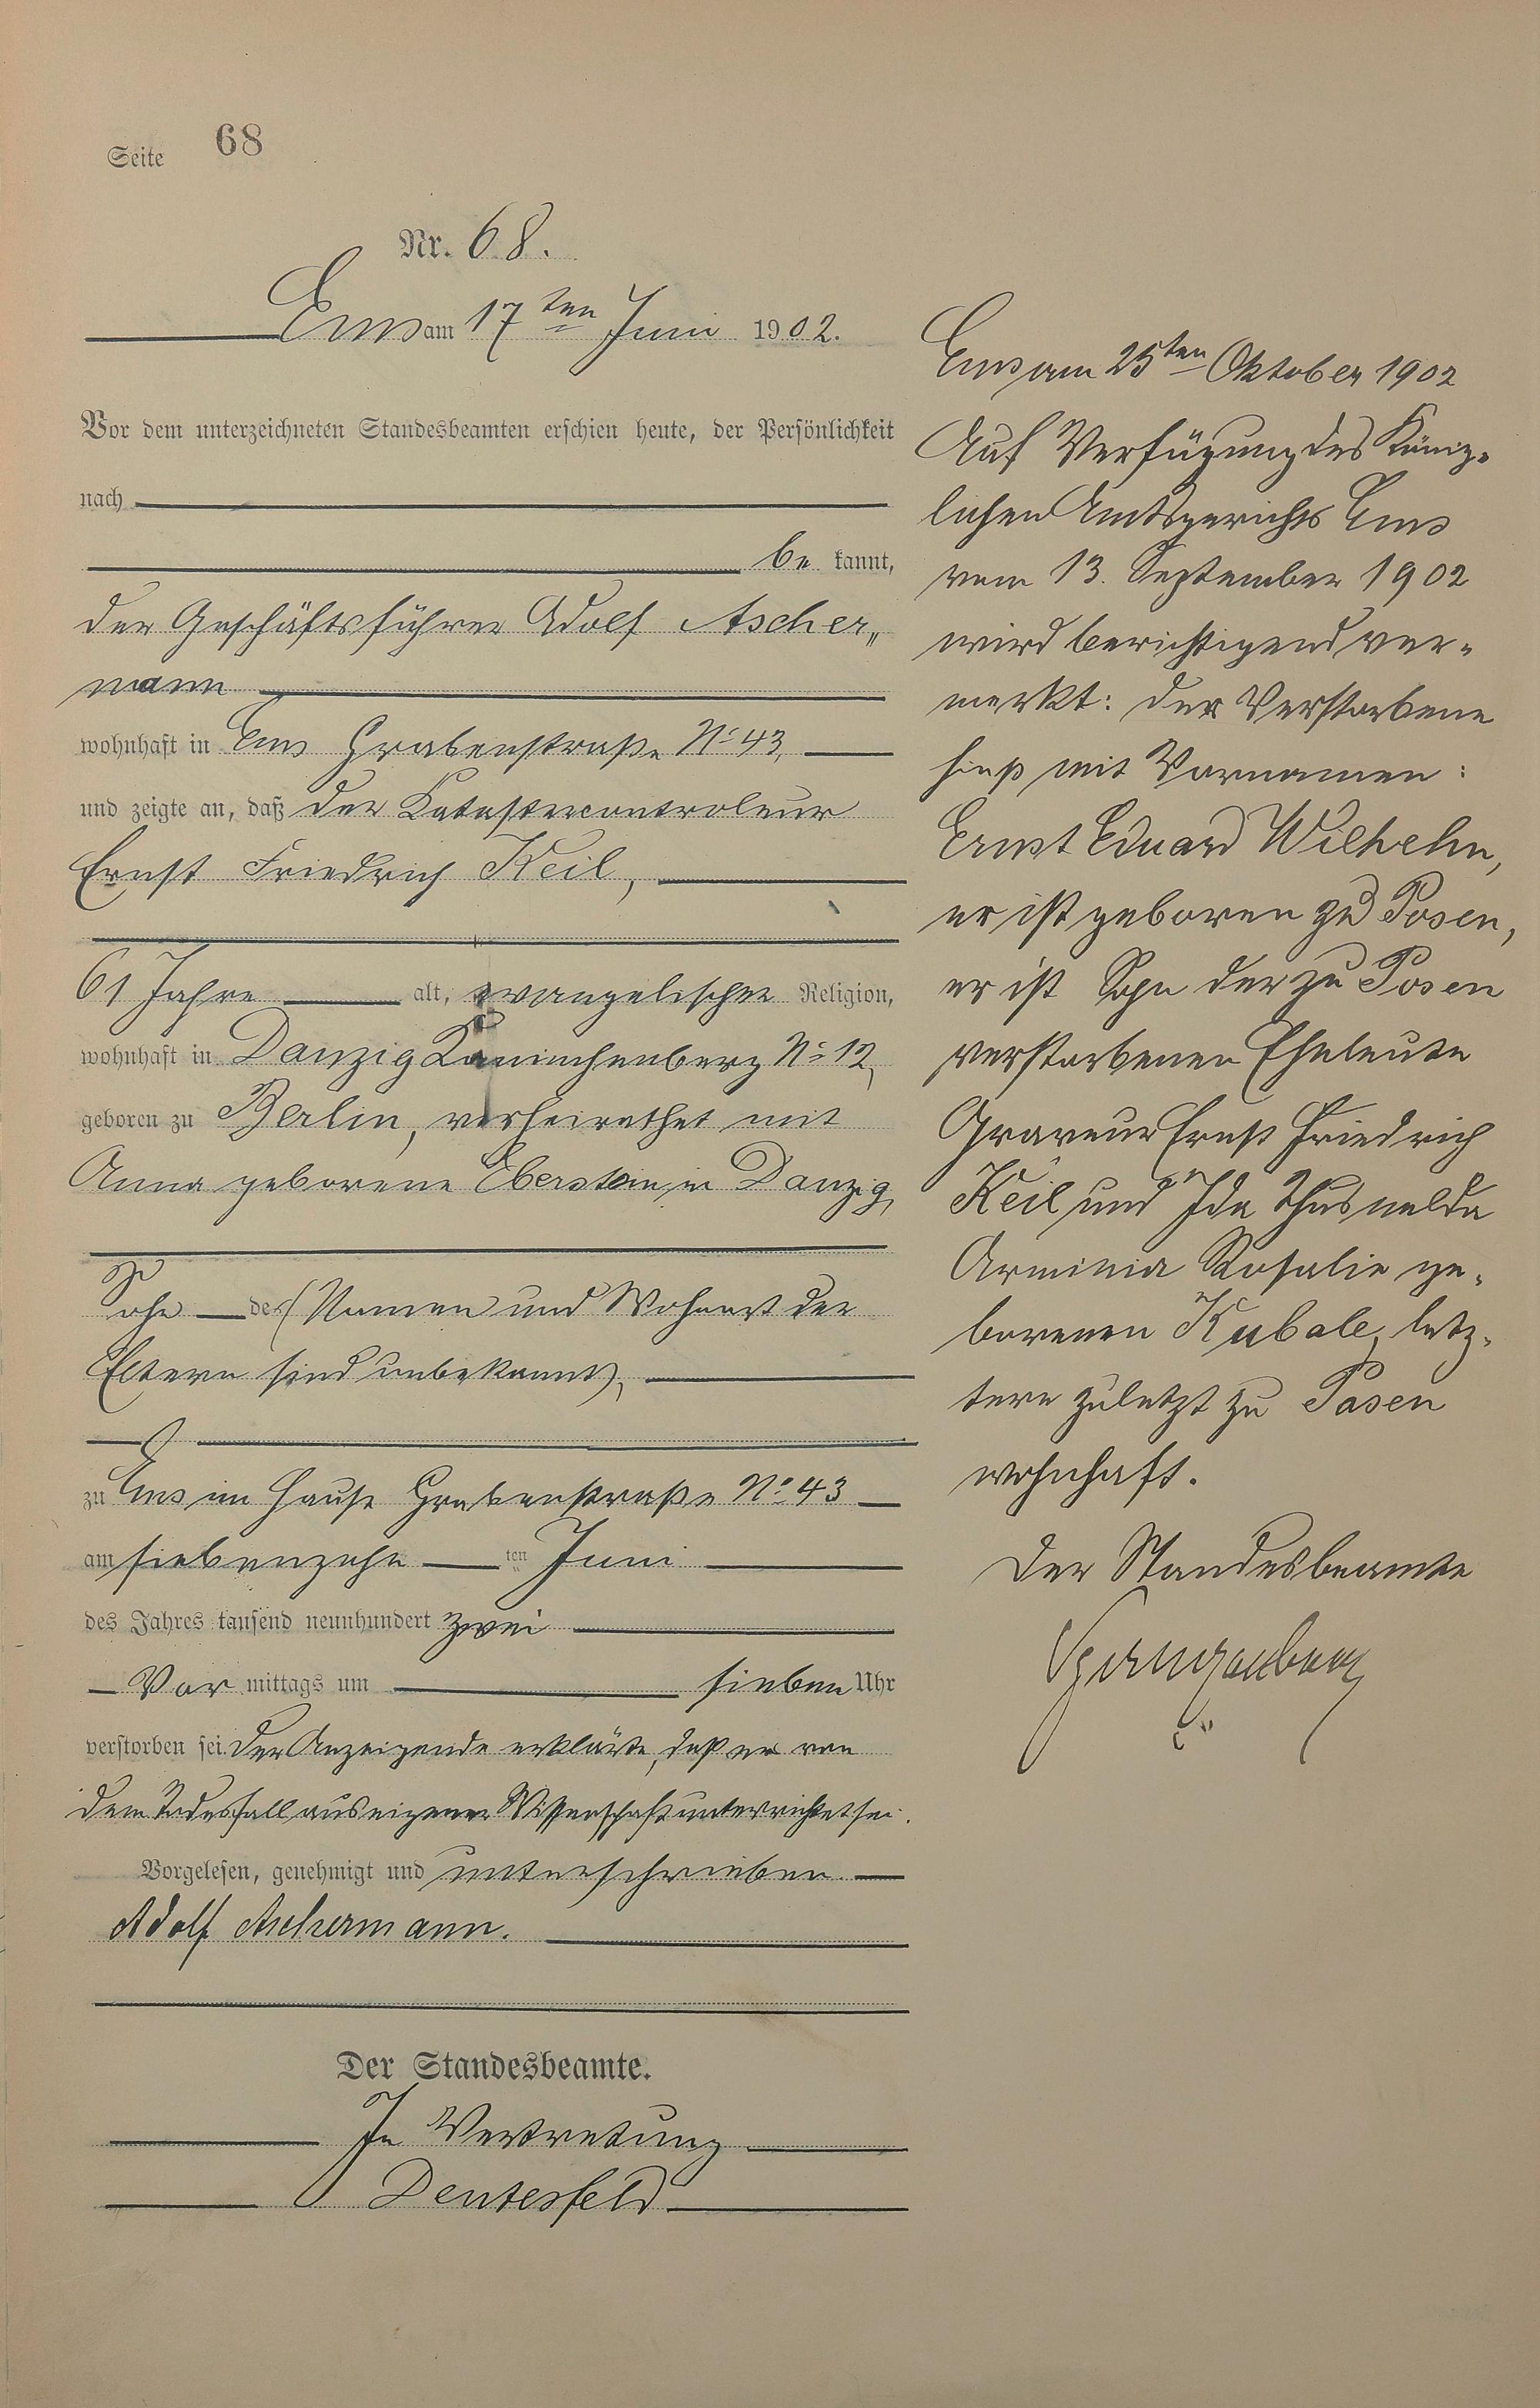 Seite 68
Nr. 68.
Ems am 17ten Juni 1902.
Vor dem unterzeichneten Standesbeamten erschien heute, der Persönlichkeit
nach
be kannt,
der Geschäftsführer Adolf Ascher„
mann
wohnhaft in Ems Grabenstraße No 43,
und zeigte an, daß der Katastercontroleur
Ernst Friedrich Keil,
61 Jahre alt, evangelischer Religion,
wohnhaft in Danzig Kaninchenberg No 12,
geboren zu Berlin, verheirathet mit
Anna geborene Eberstein in Danzig,
Sohn des (Namen und Wohnort der
Eltern sind unbekannt),
zu Ems im Hause Grabenstraße No 43
am siebenzehn ten Juni
des Jahres tausend neunhundert zwei
Vor mittags um sieben Uhr
verstorben sei. Der Anzeigende erklärte, daß er von
dem Todesfall aus eigener Wissenschaft unterrichtet sei.
Vorgelesen, genehmigt und unterschrieben.
Adolf Aschermann.
Der Standesbeamte.
In Vertretung
Deutesfeld
Ems am 25ten Oktober 1902
Auf Verfügung des König-
lichen Amtsgerichts Ems
vom 13. September 1902
wird berichtigend ver-
merkt: der Verstorbene
hieß mit Vornamen:
Ernst Eduard Wilhelm,
er ist geboren zu Posen,
er ist Sohn der zu Posen
verstorbenen Eheleute
Graveur Ernst Friedrich
Keil und Ida Thusnelda
Arminia Rosalie ge-
borenen Kubale, letz-
tere zuletzt zu Posen
wohnhaft.
Der Standesbeamte